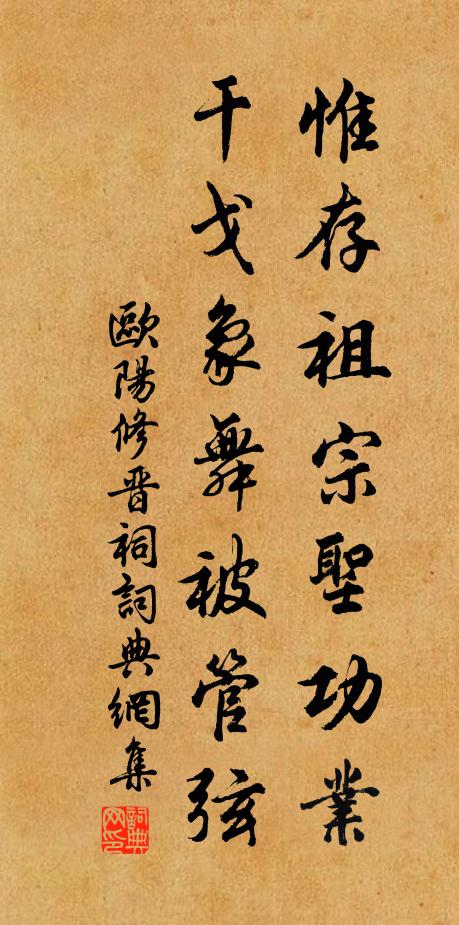 惟存祖宗聖功業
干戈象舞被管弦
歐陽修晉祠詞典網集
詞典网印